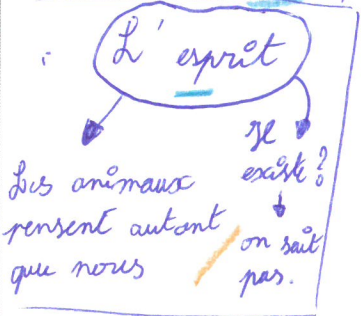 L'esprit
Les animaux
pensent autant
que nous
Il
existe?
on sait
pas.